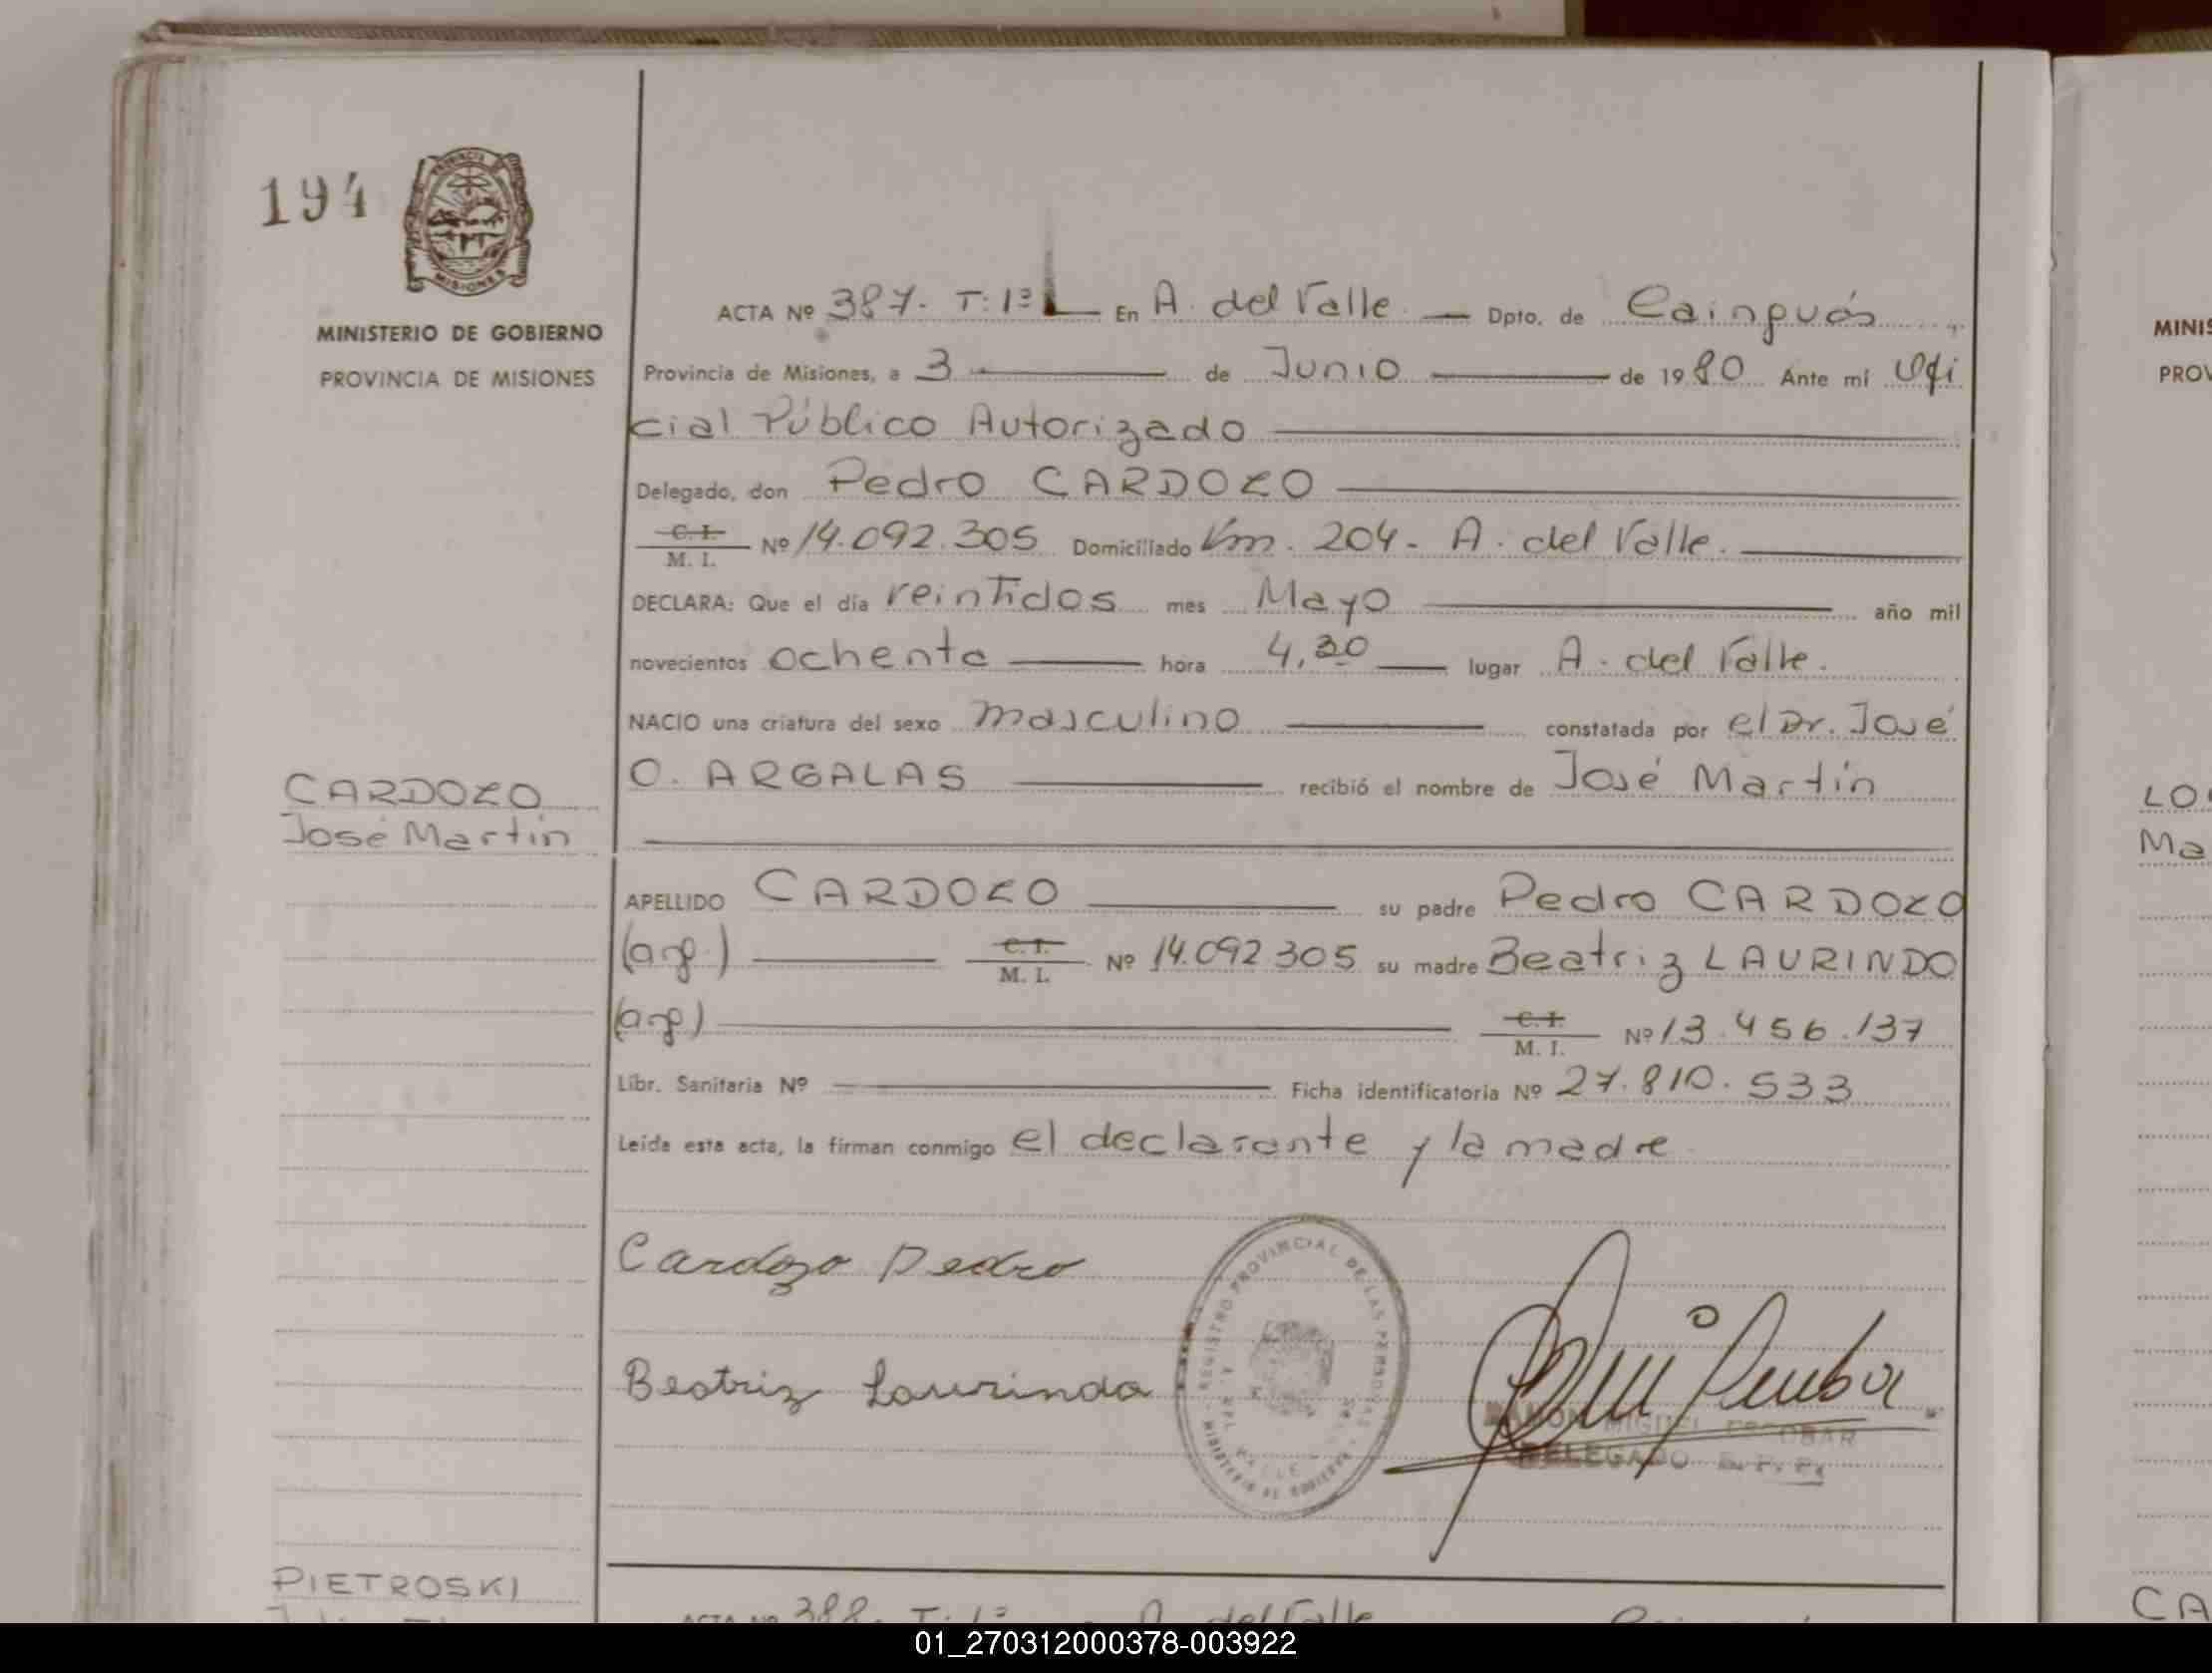 194
PROVINCIA
MISIONES
MINISTERIO DE GOBIERNO
PROVINCIA DE MISIONES
ACTA Nº 387. T: 1º En A. del Valle. Dpto. de Cainguás
Provincia de Misiones, a 3 de Junio de 1980 Ante mí Ofi
cial Público Autorizado
Delegado, don Pedro CARDOZO
C. I. M. I. Nº 14.092.305 Domiciliado Km. 204. A. del Valle.
DECLARA: Que el día veintidos mes Mayo año mil
novecientos ochenta hora 4,30 lugar A. del Valle.
NACIO una criatura del sexo masculino constatada por el Dr. José
O. ARGALAS recibió el nombre de José Martín
CARDOZO
José Martín
APELLIDO CARDOZO su padre Pedro CARDOZO
(arg.) C. I. M. I. Nº 14.092.305 su madre Beatriz LAURINDO
(arg) C. I. M. I. Nº 13.456.137
Libr. Sanitaria Nº Ficha identificatoria Nº 27.810.533
Leída esta acta, la firman conmigo el declarante y la madre
Cardozo Pedro
Beatriz Laurindo
REGISTRO PROVINCIAL DE LAS PERSONAS
MINISTERIO DE GOBIERNO
RAMON MIGUEL ESCOBAR
DELEGADO
PIETROSKI
ACTA Nº 388. T: 1º A. del Valle
MINIS
PROV
LO
Ma
CA
01_270312000378-003922